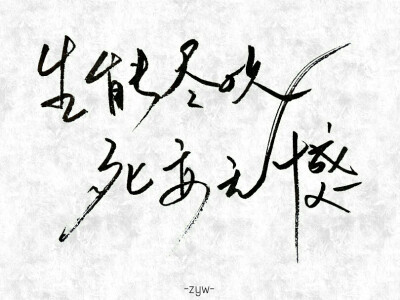 生能尽欢
死亦无憾
-zyw-